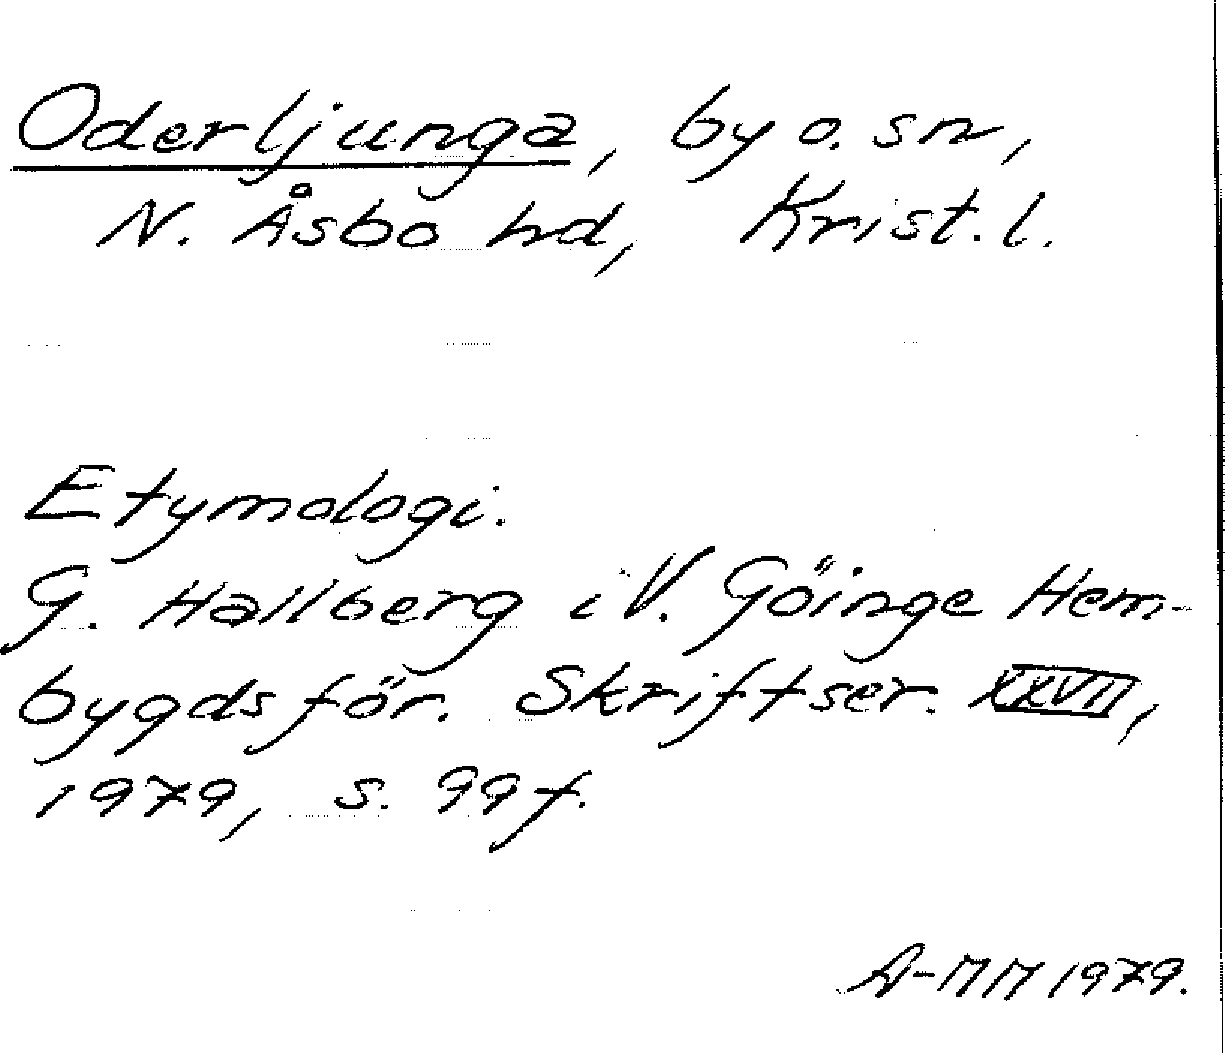 Oderljunga, by o. sn,
N. Åsbo hd, Krist. l.
Etymologi.
G. Hallberg i V. Göinge Hem-
bygdsför. Skriftser. XXVII,
1979, s. 99 f.
A-MM 1979.